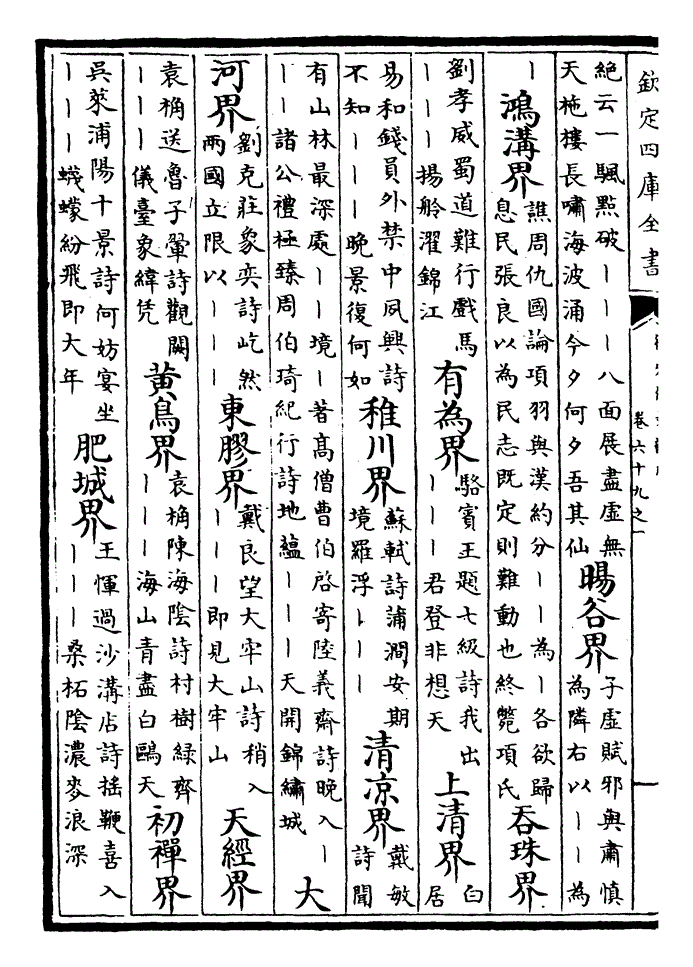 欽定四庫全書
卷六十九之一
絶云一颿點破丨丨丨八面展盡虛無
天柂樓長嘯海波涌今夕何夕吾其仙
暘谷界
子虛賦邪與肅慎
為隣右以丨丨為
丨
鴻溝界
譙周仇國論項羽與漢約分丨丨為丨各欲歸
息民張良以為民志既定則難動也終斃項氏
吞珠界
劉孝威蜀道難行戲馬
丨丨丨揚舲濯錦江
有為界
駱賓王題七級詩我出
丨丨丨君登非想天
上清界
白
居
易和錢員外禁中夙興詩
不知丨丨丨晚景復何如
稚川界
蘇軾詩蒲澗安期
境羅浮丨丨丨
清凉界
戴敏
詩聞
有山林最深處丨丨境丨著髙僧曹伯啓寄陸義齋詩晚入丨
丨丨諸公禮極臻周伯琦紀行詩地藴丨丨丨天開錦繡城
大
河界
劉克莊象奕詩屹然
兩國立限以丨丨丨
東膠界
戴良望大牢山詩稍入
丨丨丨即見大牢山
天經界
袁桷送魯子翬詩觀闕
丨丨丨儀臺象緯凭
黄鳥界
袁桷陳海陰詩村樹緑齊
丨丨丨海山青盡白鷗天
初禪界
吳萊浦陽十景詩何妨宴坐
丨丨丨蠛蠓紛飛即大年
肥城界
王惲過沙溝店詩揺鞭喜入
丨丨丨桑柘陰濃麥浪深